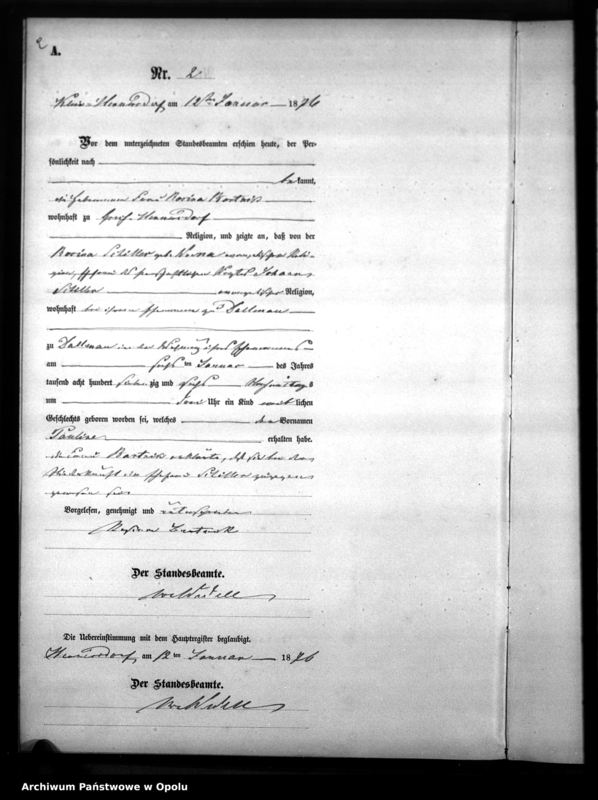 2
A.
Nr. 2
am 12ten Januar 1876
Vor dem unterzeichneten Standesbeamten erschien heute, der Per-
sönlichkeit nach
be kannt,
die Hebamme Frau Rosina Bartnik
wohnhaft zu Groß-Hennersdorf
Religion, und zeigte an, daß von der
Rosina Schiller geb. evangelischer Reli-
gion, Ehefrau des Johann
Schiller evangelischer Religion,
wohnhaft bei ihrem Ehemanne zu Dallmau
zu Dallmau in der Wohnung ihres Ehemannes
am sechs ten Januar des Jahres
tausend acht hundert sieben zig und sechs Nachmittag s
um drei Uhr ein Kind weib lichen
Geschlechts geboren worden sei, welches den Vornamen
Pauline erhalten habe.
die Frau Bartnik erklärte, daß sie bei der
Niederkunft der Ehefrau Schiller zugegen
gewesen sei
Vorgelesen, genehmigt und unterschrieben
Rosina Bartnik
Der Standesbeamte.
Die Uebereinstimmung mit dem Hauptregister beglaubigt.
Hennersdorf, am 12 ten Januar 1876
Der Standesbeamte.
Archiwum Państwowe w Opolu